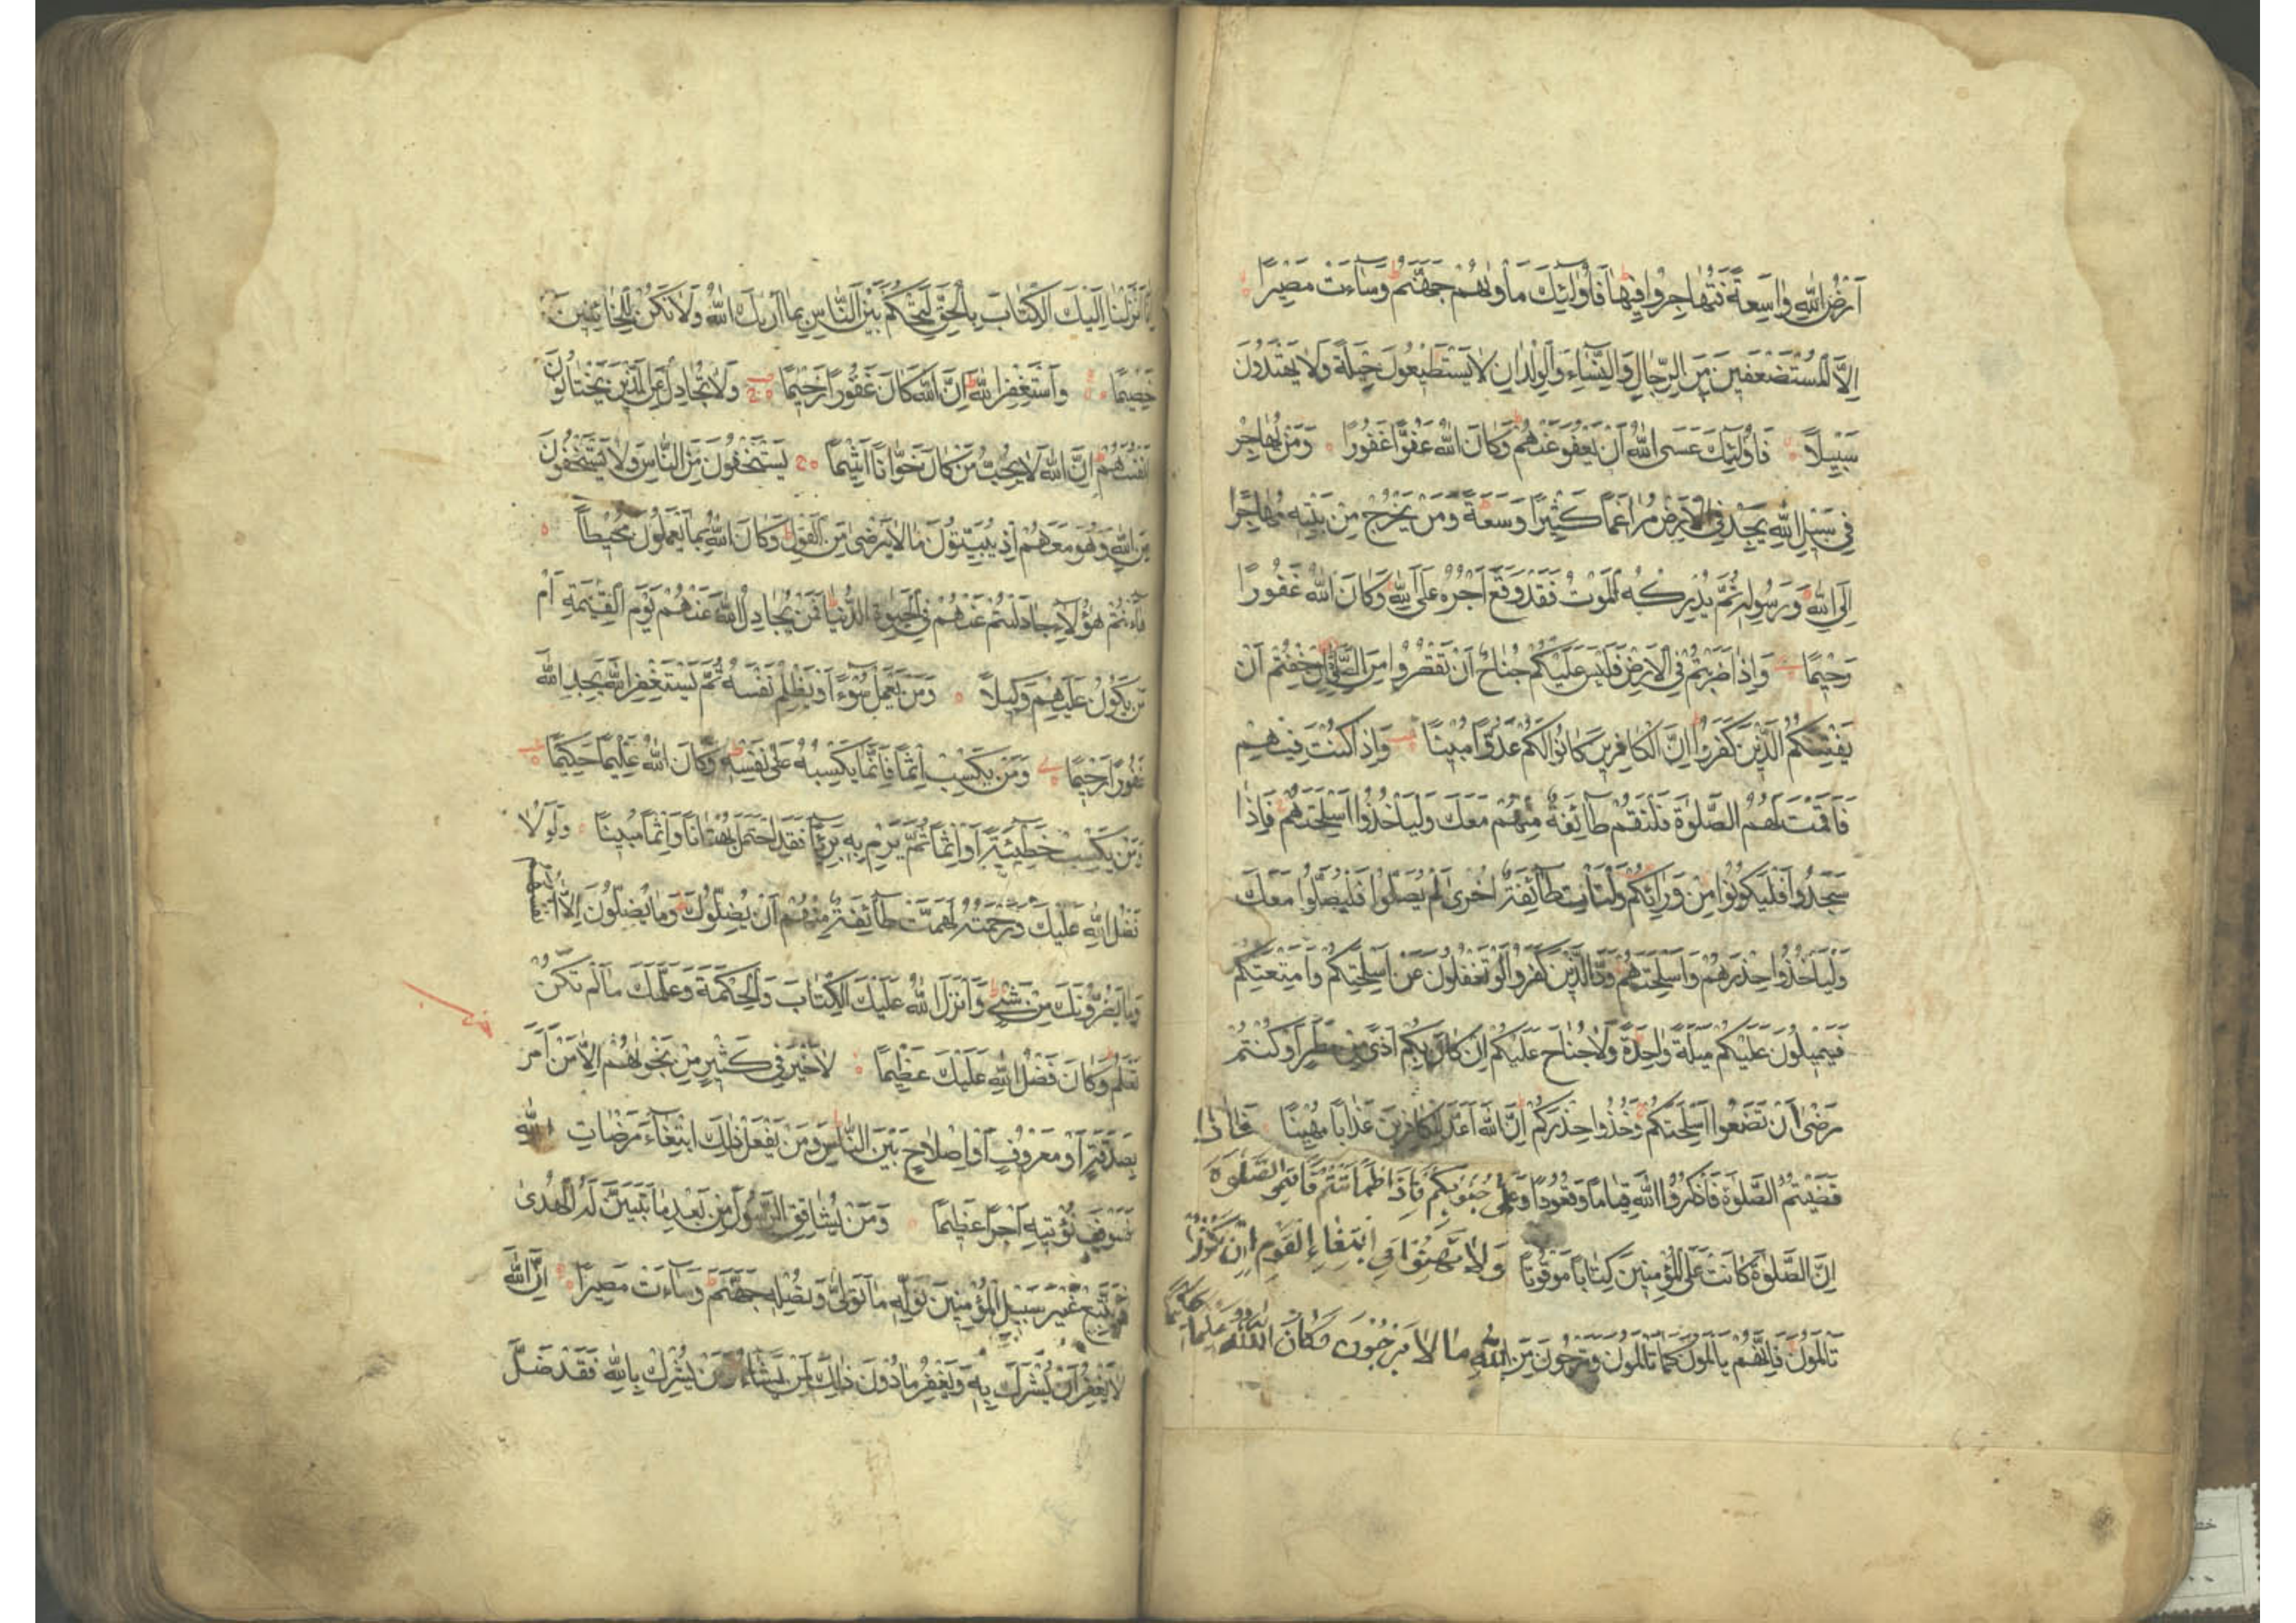 أَرْضُ اللهِ وَاسِعَةً فَتُهَاجِرُوا فِيهَا فَأُولٰئِكَ مَأْوٰىهُمْ جَهَنَّمُ وَسَآءَتْ مَصِيْرًا
اِلَّا الْمُسْتَضْعَفِينَ مِنَ الرِّجَالِ وَالنِّسَآءِ وَالْوِلْدَانِ لَا يَسْتَطِيعُونَ حِيْلَةً وَلَا يَهْتَدُونَ
سَبِيْلًا فَأُولٰئِكَ عَسَى اللهُ أَنْ يَعْفُوَ عَنْهُمْ وَكَانَ اللهُ عَفُوًّا غَفُورًا وَمَنْ يُهَاجِرْ
فِي سَبِيْلِ اللهِ يَجِدْ فِي الْأَرْضِ مُرَاغَمًا كَثِيْرًا وَسَعَةً وَمَنْ يَخْرُجْ مِنْ بَيْتِهِ مُهَاجِرًا
اِلَى اللهِ وَرَسُولِهِ ثُمَّ يُدْرِكْهُ الْمَوْتُ فَقَدْ وَقَعَ أَجْرُهُ عَلَى اللهِ وَكَانَ اللهُ غَفُورًا
رَحِيْمًا وَاِذَا ضَرَبْتُمْ فِي الْأَرْضِ فَلَيْسَ عَلَيْكُمْ جُنَاحٌ أَنْ تَقْصُرُوا مِنَ الصَّلٰوةِ اِنْ خِفْتُمْ أَنْ
يَفْتِنَكُمُ الَّذِيْنَ كَفَرُوا اِنَّ الْكَافِرِيْنَ كَانُوا لَكُمْ عَدُوًّا مُبِيْنًا وَاِذَا كُنْتَ فِيْهِمْ
فَأَقَمْتَ لَهُمُ الصَّلٰوةَ فَلْتَقُمْ طَآئِفَةٌ مِنْهُمْ مَعَكَ وَلْيَأْخُذُوا أَسْلِحَتَهُمْ فَاِذَا
سَجَدُوا فَلْيَكُونُوا مِنْ وَرَائِكُمْ وَلْتَأْتِ طَآئِفَةٌ أُخْرٰى لَمْ يُصَلُّوا فَلْيُصَلُّوا مَعَكَ
وَلْيَأْخُذُوا حِذْرَهُمْ وَأَسْلِحَتَهُمْ وَدَّ الَّذِيْنَ كَفَرُوا لَوْ تَغْفُلُونَ عَنْ أَسْلِحَتِكُمْ وَأَمْتِعَتِكُمْ
فَيَمِيْلُونَ عَلَيْكُمْ مَيْلَةً وَاحِدَةً وَلَا جُنَاحَ عَلَيْكُمْ اِنْ كَانَ بِكُمْ أَذًى مِنْ مَطَرٍ أَوْ كُنْتُمْ
مَرْضٰى أَنْ تَضَعُوا أَسْلِحَتَكُمْ وَخُذُوا حِذْرَكُمْ اِنَّ اللهَ أَعَدَّ لِلْكَافِرِيْنَ عَذَابًا مُهِيْنًا فَاِذَا
قَضَيْتُمُ الصَّلٰوةَ فَاذْكُرُوا اللهَ قِيَامًا وَقُعُودًا وَعَلٰى جُنُوبِكُمْ فَاِذَا اطْمَأْنَنْتُمْ فَأَقِيمُوا الصَّلٰوةَ
اِنَّ الصَّلٰوةَ كَانَتْ عَلَى الْمُؤْمِنِيْنَ كِتَابًا مَوْقُوتًا وَلَا تَهِنُوا فِي ابْتِغَاءِ الْقَوْمِ اِنْ تَكُونُوا
تَأْلَمُونَ فَاِنَّهُمْ يَأْلَمُونَ كَمَا تَأْلَمُونَ وَتَرْجُونَ مِنَ اللهِ مَا لَا يَرْجُونَ وَكَانَ اللهُ عَلِيمًا حَكِيمًا
اِنَّا أَنْزَلْنَا اِلَيْكَ الْكِتَابَ بِالْحَقِّ لِتَحْكُمَ بَيْنَ النَّاسِ بِمَا أَرٰيكَ اللهُ وَلَا تَكُنْ لِلْخَائِنِيْنَ
خَصِيْمًا وَاسْتَغْفِرِ اللهَ اِنَّ اللهَ كَانَ غَفُورًا رَحِيْمًا وَلَا تُجَادِلْ عَنِ الَّذِيْنَ يَخْتَانُونَ
أَنْفُسَهُمْ اِنَّ اللهَ لَا يُحِبُّ مَنْ كَانَ خَوَّانًا أَثِيْمًا يَسْتَخْفُونَ مِنَ النَّاسِ وَلَا يَسْتَخْفُونَ
مِنَ اللهِ وَهُوَ مَعَهُمْ اِذْ يُبَيِّتُونَ مَا لَا يَرْضٰى مِنَ الْقَوْلِ وَكَانَ اللهُ بِمَا يَعْمَلُونَ مُحِيْطًا
هٰأَنْتُمْ هٰؤُلَآءِ جَادَلْتُمْ عَنْهُمْ فِي الْحَيٰوةِ الدُّنْيَا فَمَنْ يُجَادِلُ اللهَ عَنْهُمْ يَوْمَ الْقِيٰمَةِ أَمْ
مَنْ يَكُوْنُ عَلَيْهِمْ وَكِيْلًا وَمَنْ يَعْمَلْ سُوْءًا أَوْ يَظْلِمْ نَفْسَهُ ثُمَّ يَسْتَغْفِرِ اللهَ يَجِدِ اللهَ
غَفُورًا رَحِيْمًا وَمَنْ يَكْسِبْ اِثْمًا فَاِنَّمَا يَكْسِبُهُ عَلٰى نَفْسِهِ وَكَانَ اللهُ عَلِيْمًا حَكِيْمًا
وَمَنْ يَكْسِبْ خَطِيْئَةً أَوْ اِثْمًا ثُمَّ يَرْمِ بِهِ بَرِيْئًا فَقَدِ احْتَمَلَ بُهْتَانًا وَاِثْمًا مُبِيْنًا وَلَوْلَا
فَضْلُ اللهِ عَلَيْكَ وَرَحْمَتُهُ لَهَمَّتْ طَآئِفَةٌ مِنْهُمْ أَنْ يُضِلُّوكَ وَمَا يُضِلُّونَ اِلَّا أَنْفُسَهُمْ
وَمَا يَضُرُّونَكَ مِنْ شَيْءٍ وَأَنْزَلَ اللهُ عَلَيْكَ الْكِتَابَ وَالْحِكْمَةَ وَعَلَّمَكَ مَا لَمْ تَكُنْ
تَعْلَمُ وَكَانَ فَضْلُ اللهِ عَلَيْكَ عَظِيْمًا لَا خَيْرَ فِي كَثِيْرٍ مِنْ نَجْوٰىهُمْ اِلَّا مَنْ أَمَرَ
بِصَدَقَةٍ أَوْ مَعْرُوفٍ أَوْ اِصْلَاحٍ بَيْنَ النَّاسِ وَمَنْ يَفْعَلْ ذٰلِكَ ابْتِغَآءَ مَرْضَاتِ اللهِ
فَسَوْفَ نُؤْتِيْهِ أَجْرًا عَظِيْمًا وَمَنْ يُشَاقِقِ الرَّسُولَ مِنْ بَعْدِ مَا تَبَيَّنَ لَهُ الْهُدٰى
وَيَتَّبِعْ غَيْرَ سَبِيْلِ الْمُؤْمِنِيْنَ نُوَلِّهِ مَا تَوَلّٰى وَنُصْلِهِ جَهَنَّمَ وَسَآءَتْ مَصِيْرًا اِنَّ اللهَ
لَا يَغْفِرُ أَنْ يُشْرَكَ بِهِ وَيَغْفِرُ مَا دُوْنَ ذٰلِكَ لِمَنْ يَشَآءُ وَمَنْ يُشْرِكْ بِاللهِ فَقَدْ ضَلَّ